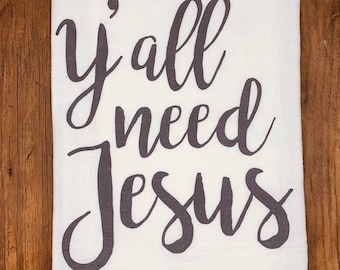 y'all
need
Jesus